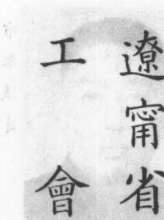 遼甯省
工會